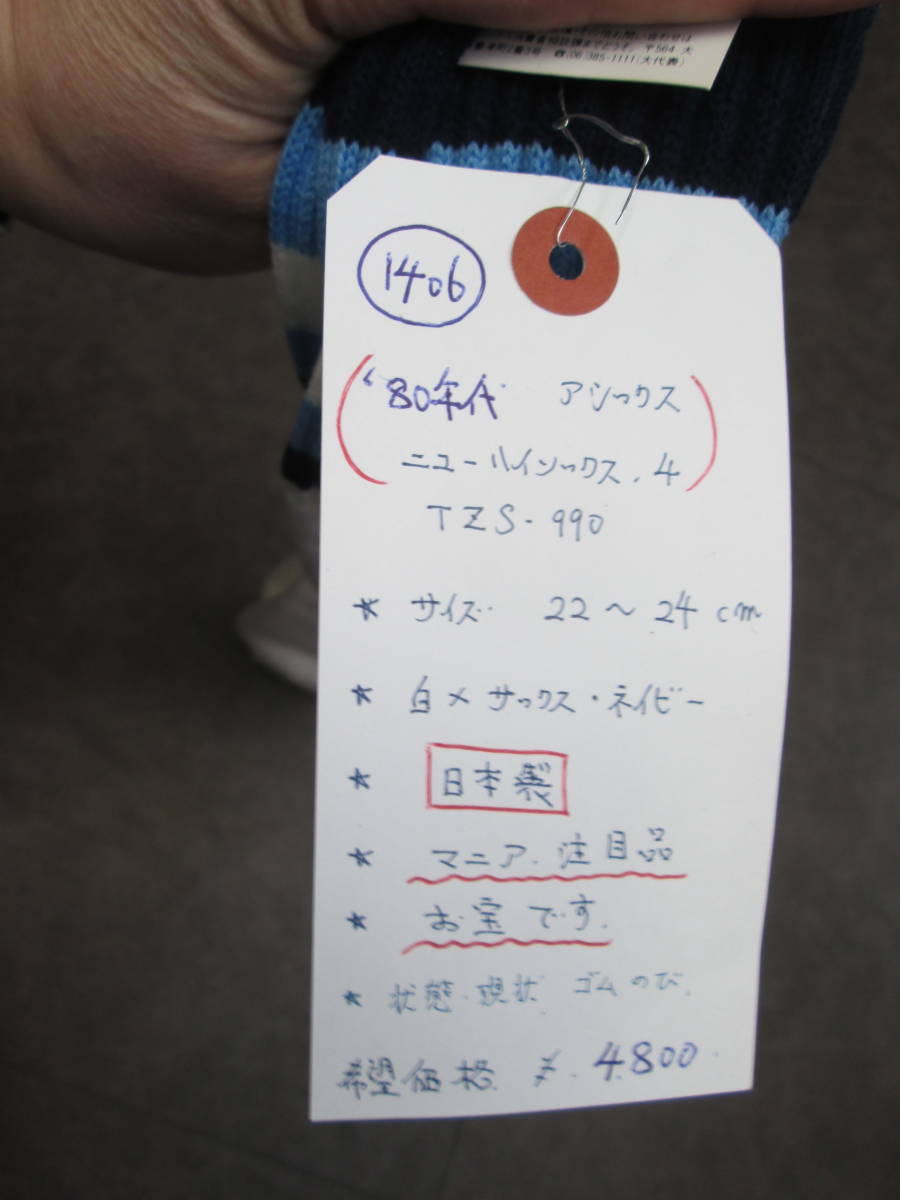 お問い合わせは
相談課までどうぞ。 〒564 大
2番3号 ☎(06)385-1111(大代表)
1406
'80年代 アシックス
ニューハイソックス.4
TZS-990
★ サイズ 22〜24cm
★ 白×サックス・ネイビー
★ 日本製
★ マニア.注目品
★ お宝です.
★ 状態.現状 ゴムのび.
希望価格 ¥.4800